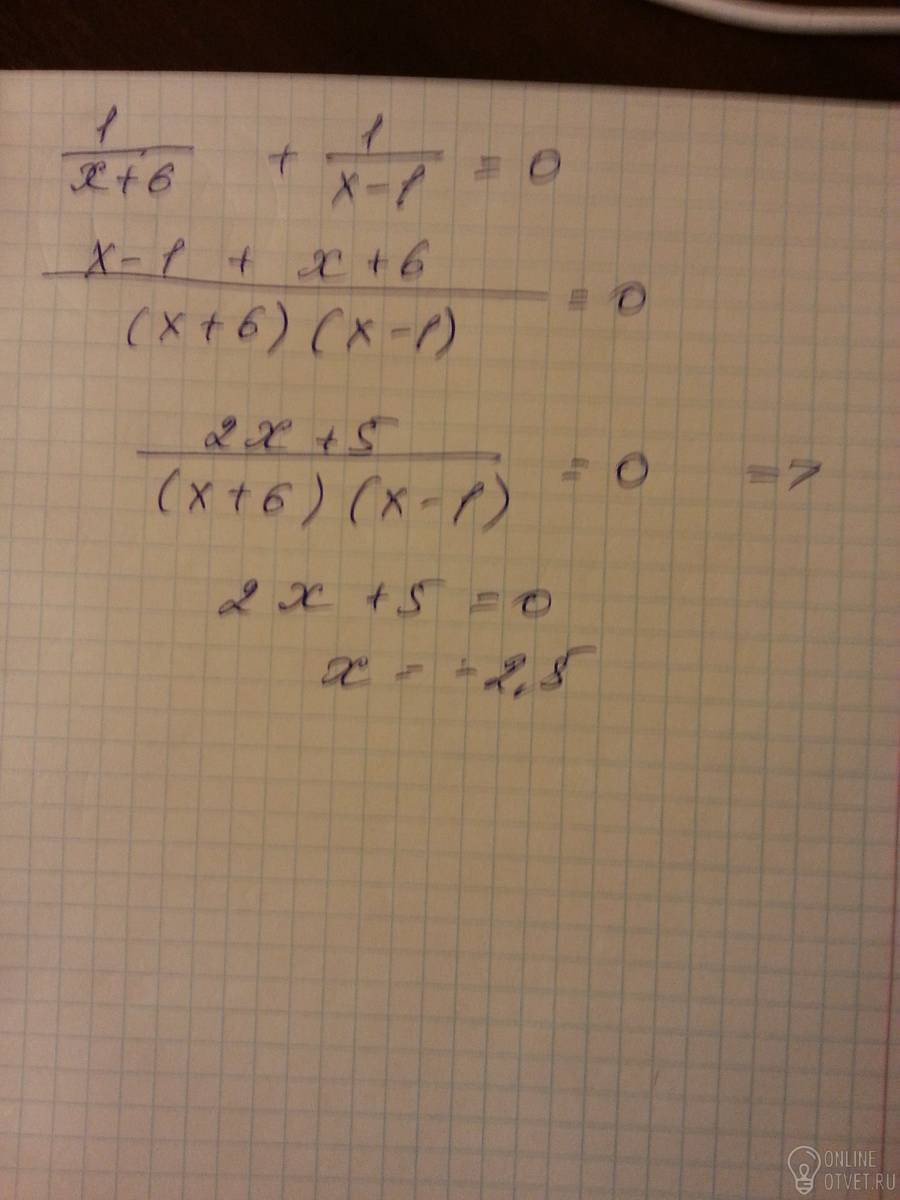 1/(x+6) + 1/(x-1) = 0
(x-1 + x+6)/((x+6)(x-1)) = 0
(2x+5)/((x+6)(x-1)) = 0 =>
2x+5=0
x = -2,5
ONLINE
OTVET.RU